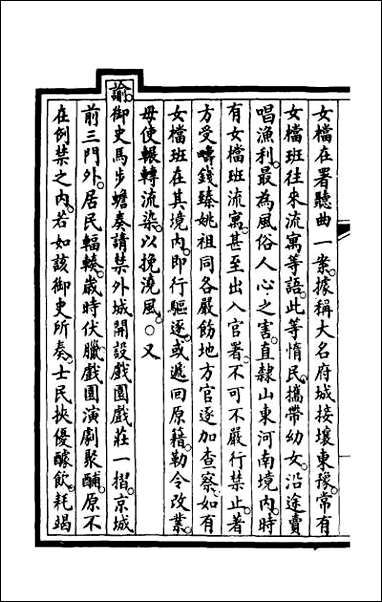 女檔在署聽曲一案。據稱大名府城接壤東豫。常有
女檔班往來流寓等語。此等惰民。攜帶幼女。沿途賣
唱漁利。最為風俗人心之害。直隸山東河南境內。時
有女檔班流寓。甚至出入官署。不可不嚴行禁止。著
方受疇錢臻姚祖同各嚴飭地方官逐加查察。如有
女檔班在其境內。即行驅逐。或遞回原籍。勒令改業。
毋使輾轉流染。以挽澆風。○又
諭。御史馬步蟾奏請禁外城開設戲園戲莊一摺。京城
前三門外。居民輻輳。歲時伏臘。戲園演劇聚酺。原不
在例禁之內。若如該御史所奏。士民挾優醵飲。耗竭